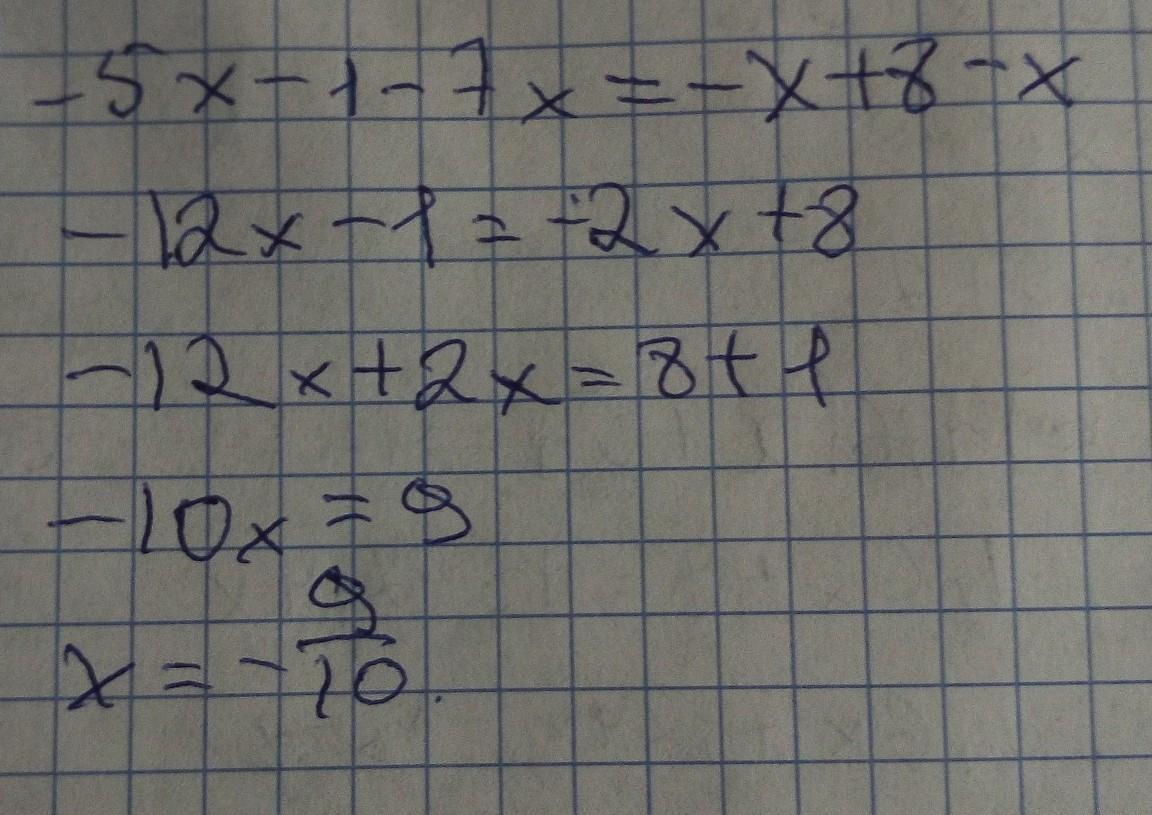 -5x-1-7x=-x+8-x
-12x-1=-2x+8
-12x+2x=8+1
-10x=9
x=-9/10.